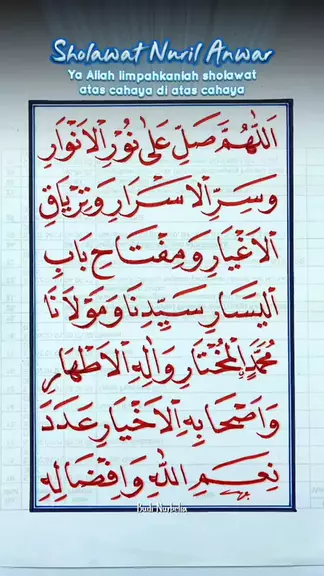 Sholawat Nuril Anwar
Ya Allah limpahkanlah sholawat
atas cahaya di atas cahaya
اَللّٰهُمَّ صَلِّ عَلٰى نُوْرِ الْاَنْوَارِ
وَسِرِّ الْاَسْرَارِ وَتِرْيَاقِ
الْاَغْيَارِ وَمِفْتَاحِ بَابِ
الْيَسَارِ سَيِّدِنَا وَمَوْلَانَا
مُحَمَّدٍ الْمُخْتَارِ وَاٰلِهِ الْاَطْهَارِ
وَاَصْحَابِهِ الْاَخْيَارِ عَدَدَ
نِعَمِ اللّٰهِ وَاِفْضَالِهِ
Budi Nurbelia